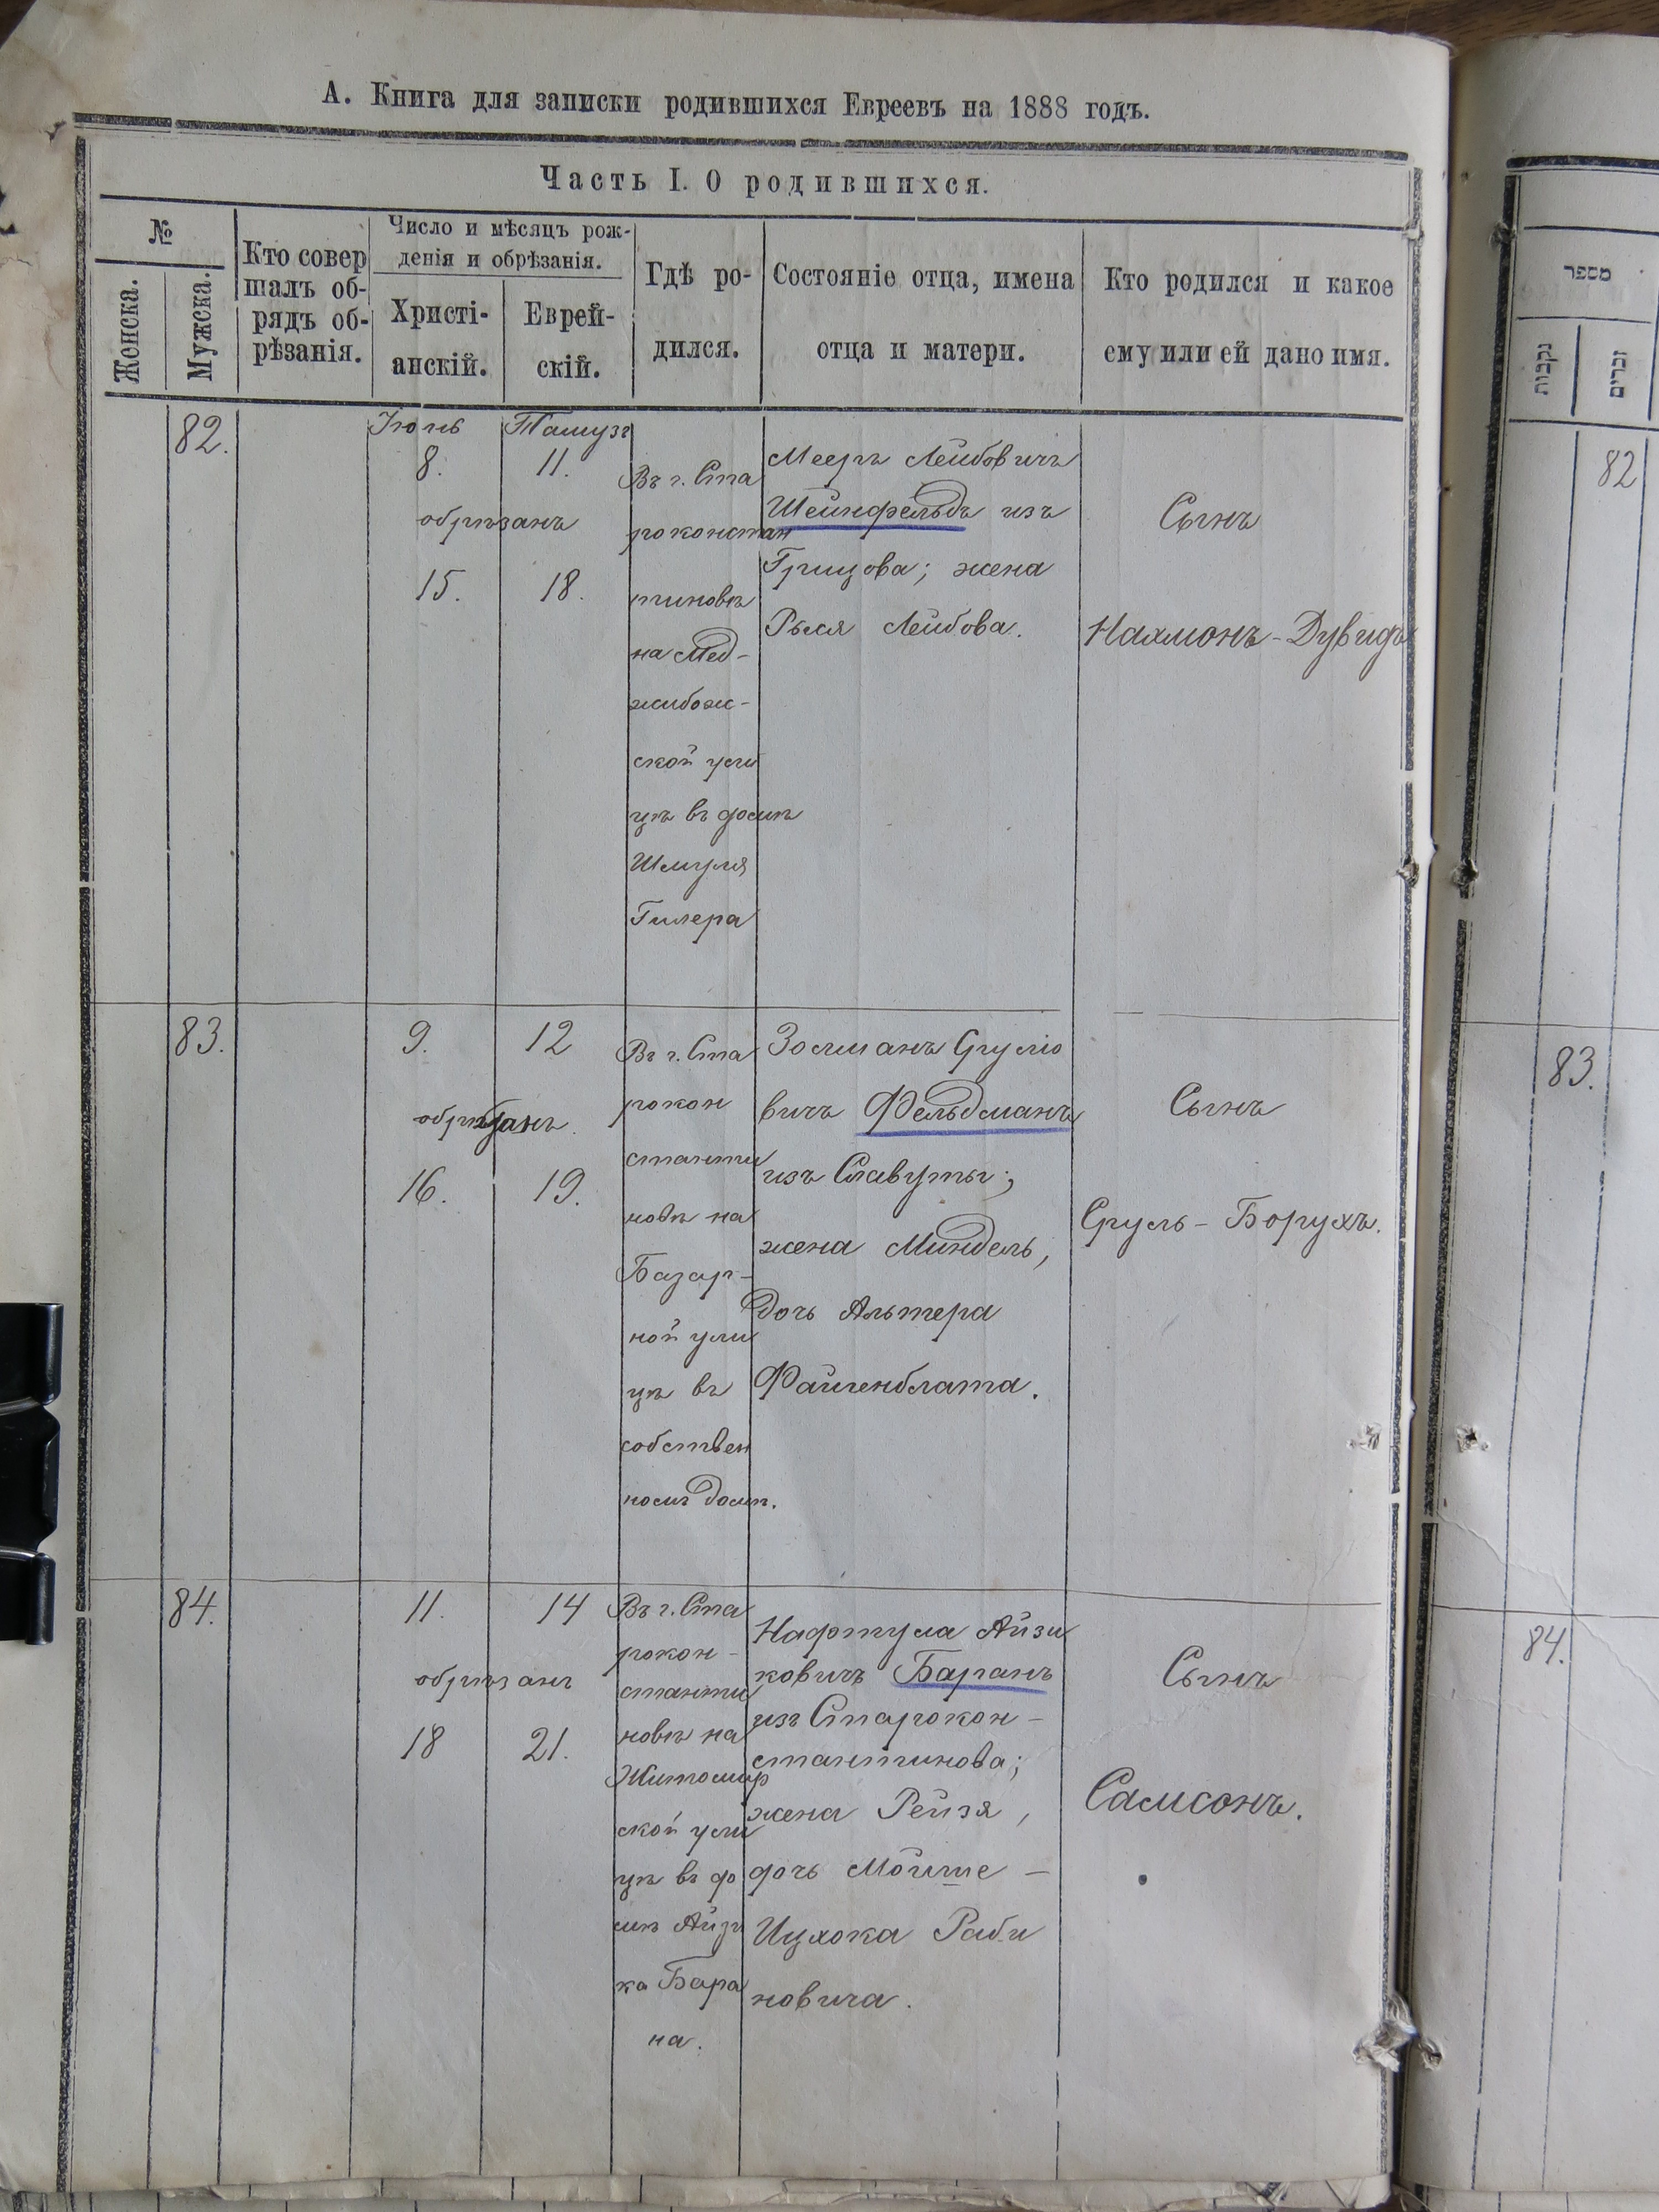 А. Книга для записки родившихся Евреевъ на 1888 годъ.
Часть I. О родившихся.
№
Женска.
Мужска.
Кто совер
шалъ об-
рядъ об-
рѣзанія.
Число и мѣсяцъ рож-
денія и обрѣзанія.
Христі-
анскій.
Еврей-
скій.
Гдѣ ро-
дился.
Состояніе отца, имена
отца и матери.
Кто родился и какое
ему или ей дано имя.
82.
Іюнь
8.
обрѣзанъ
15.
Тамузъ
11.
18.
Въ г. Ста
роконстан
тиновѣ
на Мед-
жибож-
ской ули
цѣ въ домѣ
Шмуля
Гилера
Мееръ Лейбовичъ
Штейнфельдъ изъ
Грицова; жена
Рыся Лейбова.
Сынъ
Нахмонъ-Дувидъ
83.
9.
обрѣзанъ.
16.
12
19.
Въ г. Ста
рокон
станти
новѣ на
Базар-
ной ули
цѣ въ
собствен
номъ домѣ.
Зосманъ Срулю
вичъ Фельдманъ
изъ Славуты;
жена Миндель,
дочь Альтера
Файненблата.
Сынъ
Сруль-Борухъ.
84.
11.
обрѣзанъ
18
14
21.
Въ г. Ста
рокон-
станти
новѣ на
Житомир
ской ули
цѣ въ до
мѣ Айзи
ка Бара
на.
Нафтула Айзи
ковичъ Баранъ
изъ Старокон-
стантинова;
жена Рейзя,
дочь Мойше-
Ицхока Раби
новича.
Сынъ
Самсонъ.
מספר
נקבות
זכרים
82
83.
84.